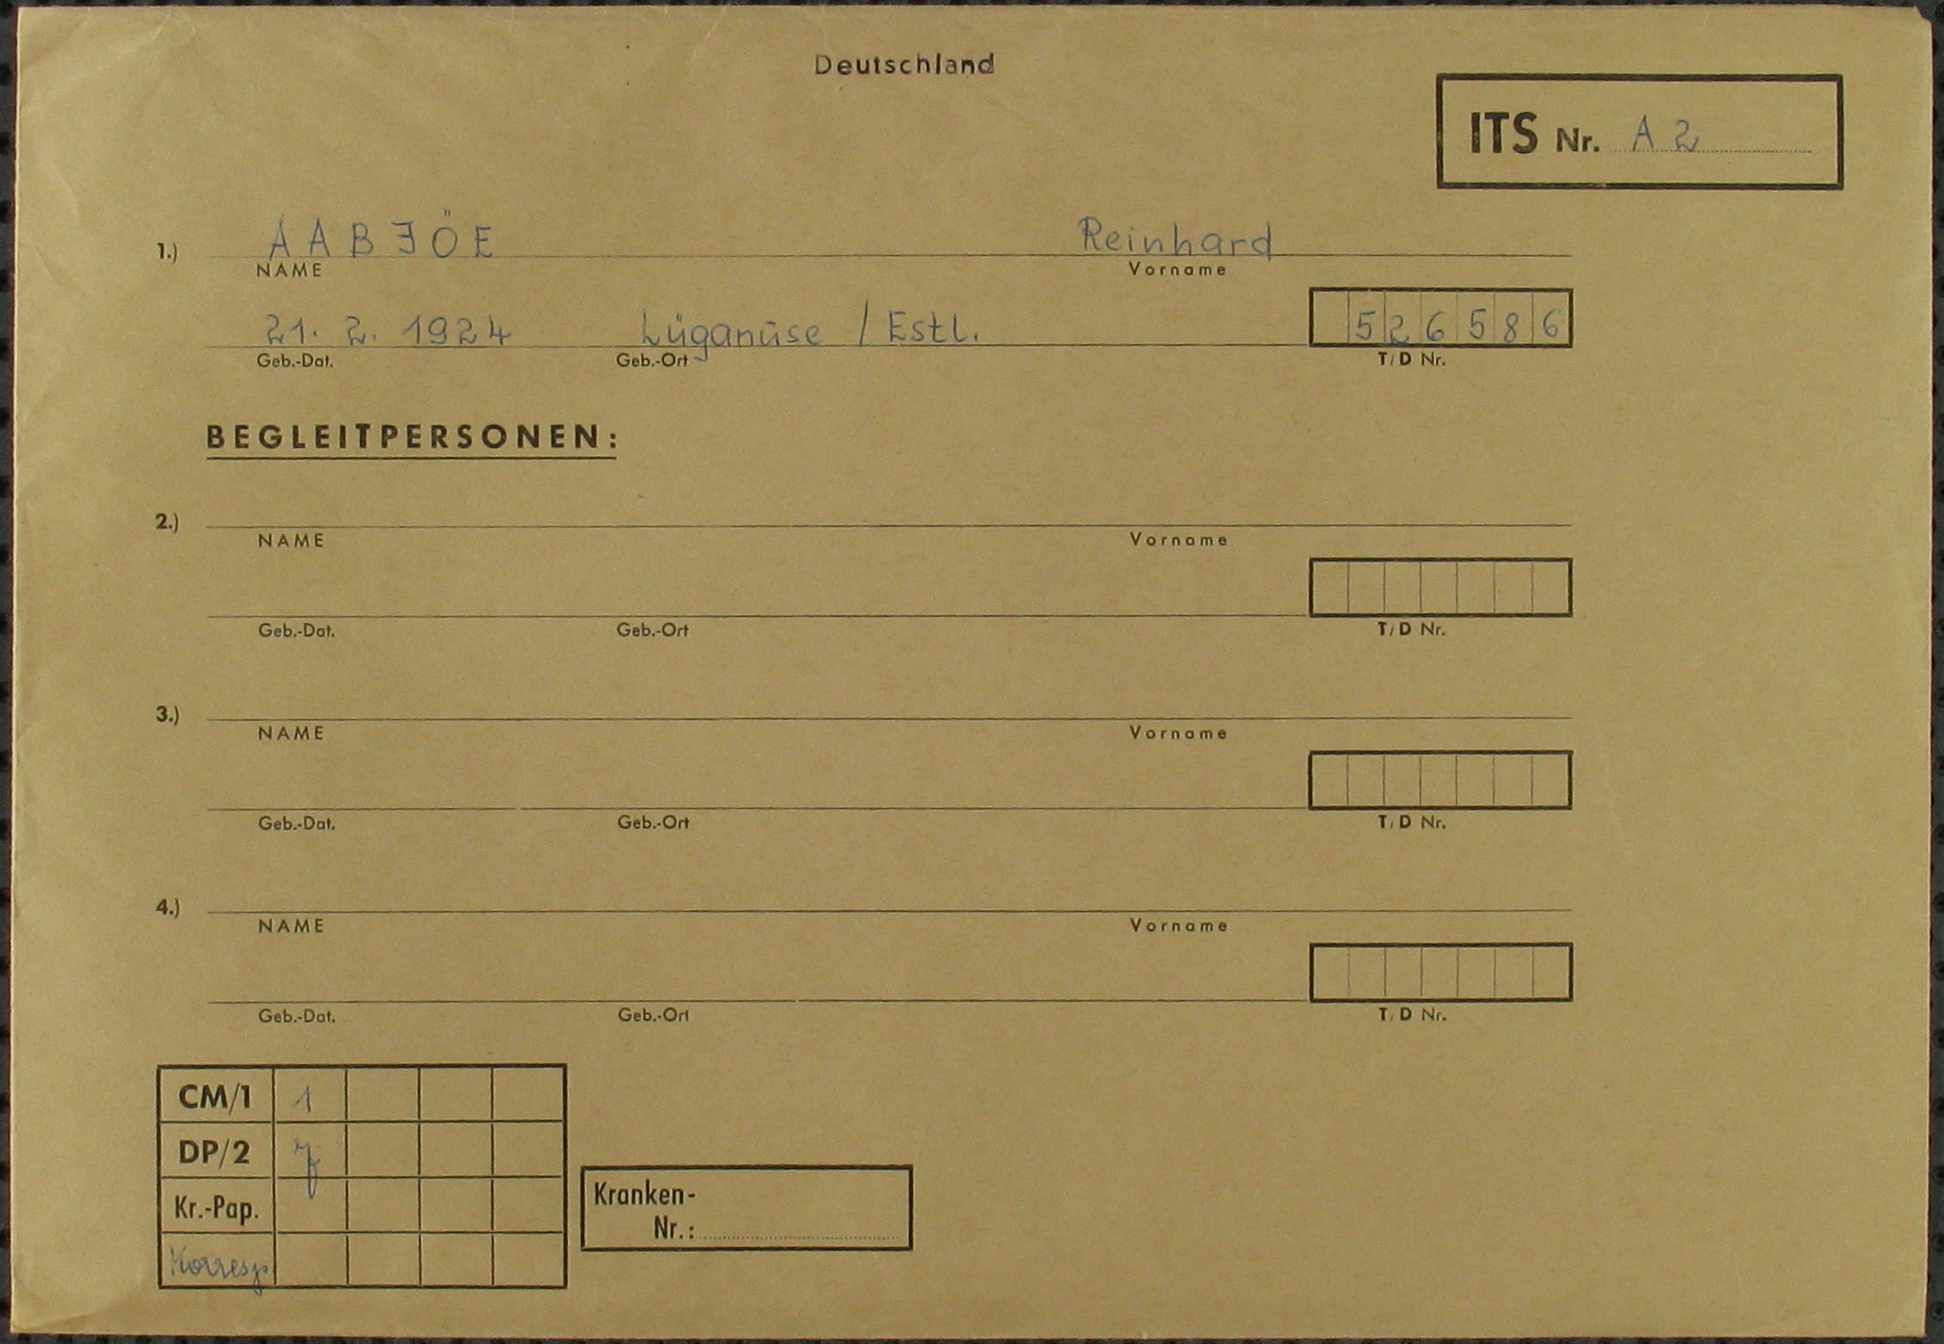 Deutschland
ITS Nr. A 2
1.) AABJÖE Reinhard
NAME Vorname
21. 2. 1924 Lüganüse / Estl. 526586
Geb.-Dat. Geb.-Ort T/D Nr.
BEGLEITPERSONEN:
2.)
NAME Vorname
Geb.-Dat. Geb.-Ort T/D Nr.
3.)
NAME Vorname
Geb.-Dat. Geb.-Ort T/D Nr.
4.)
NAME Vorname
Geb.-Dat. Geb.-Ort T/D Nr.
CM/1 1
DP/2
Kr.-Pap.
Korresp.
Kranken-
Nr.: